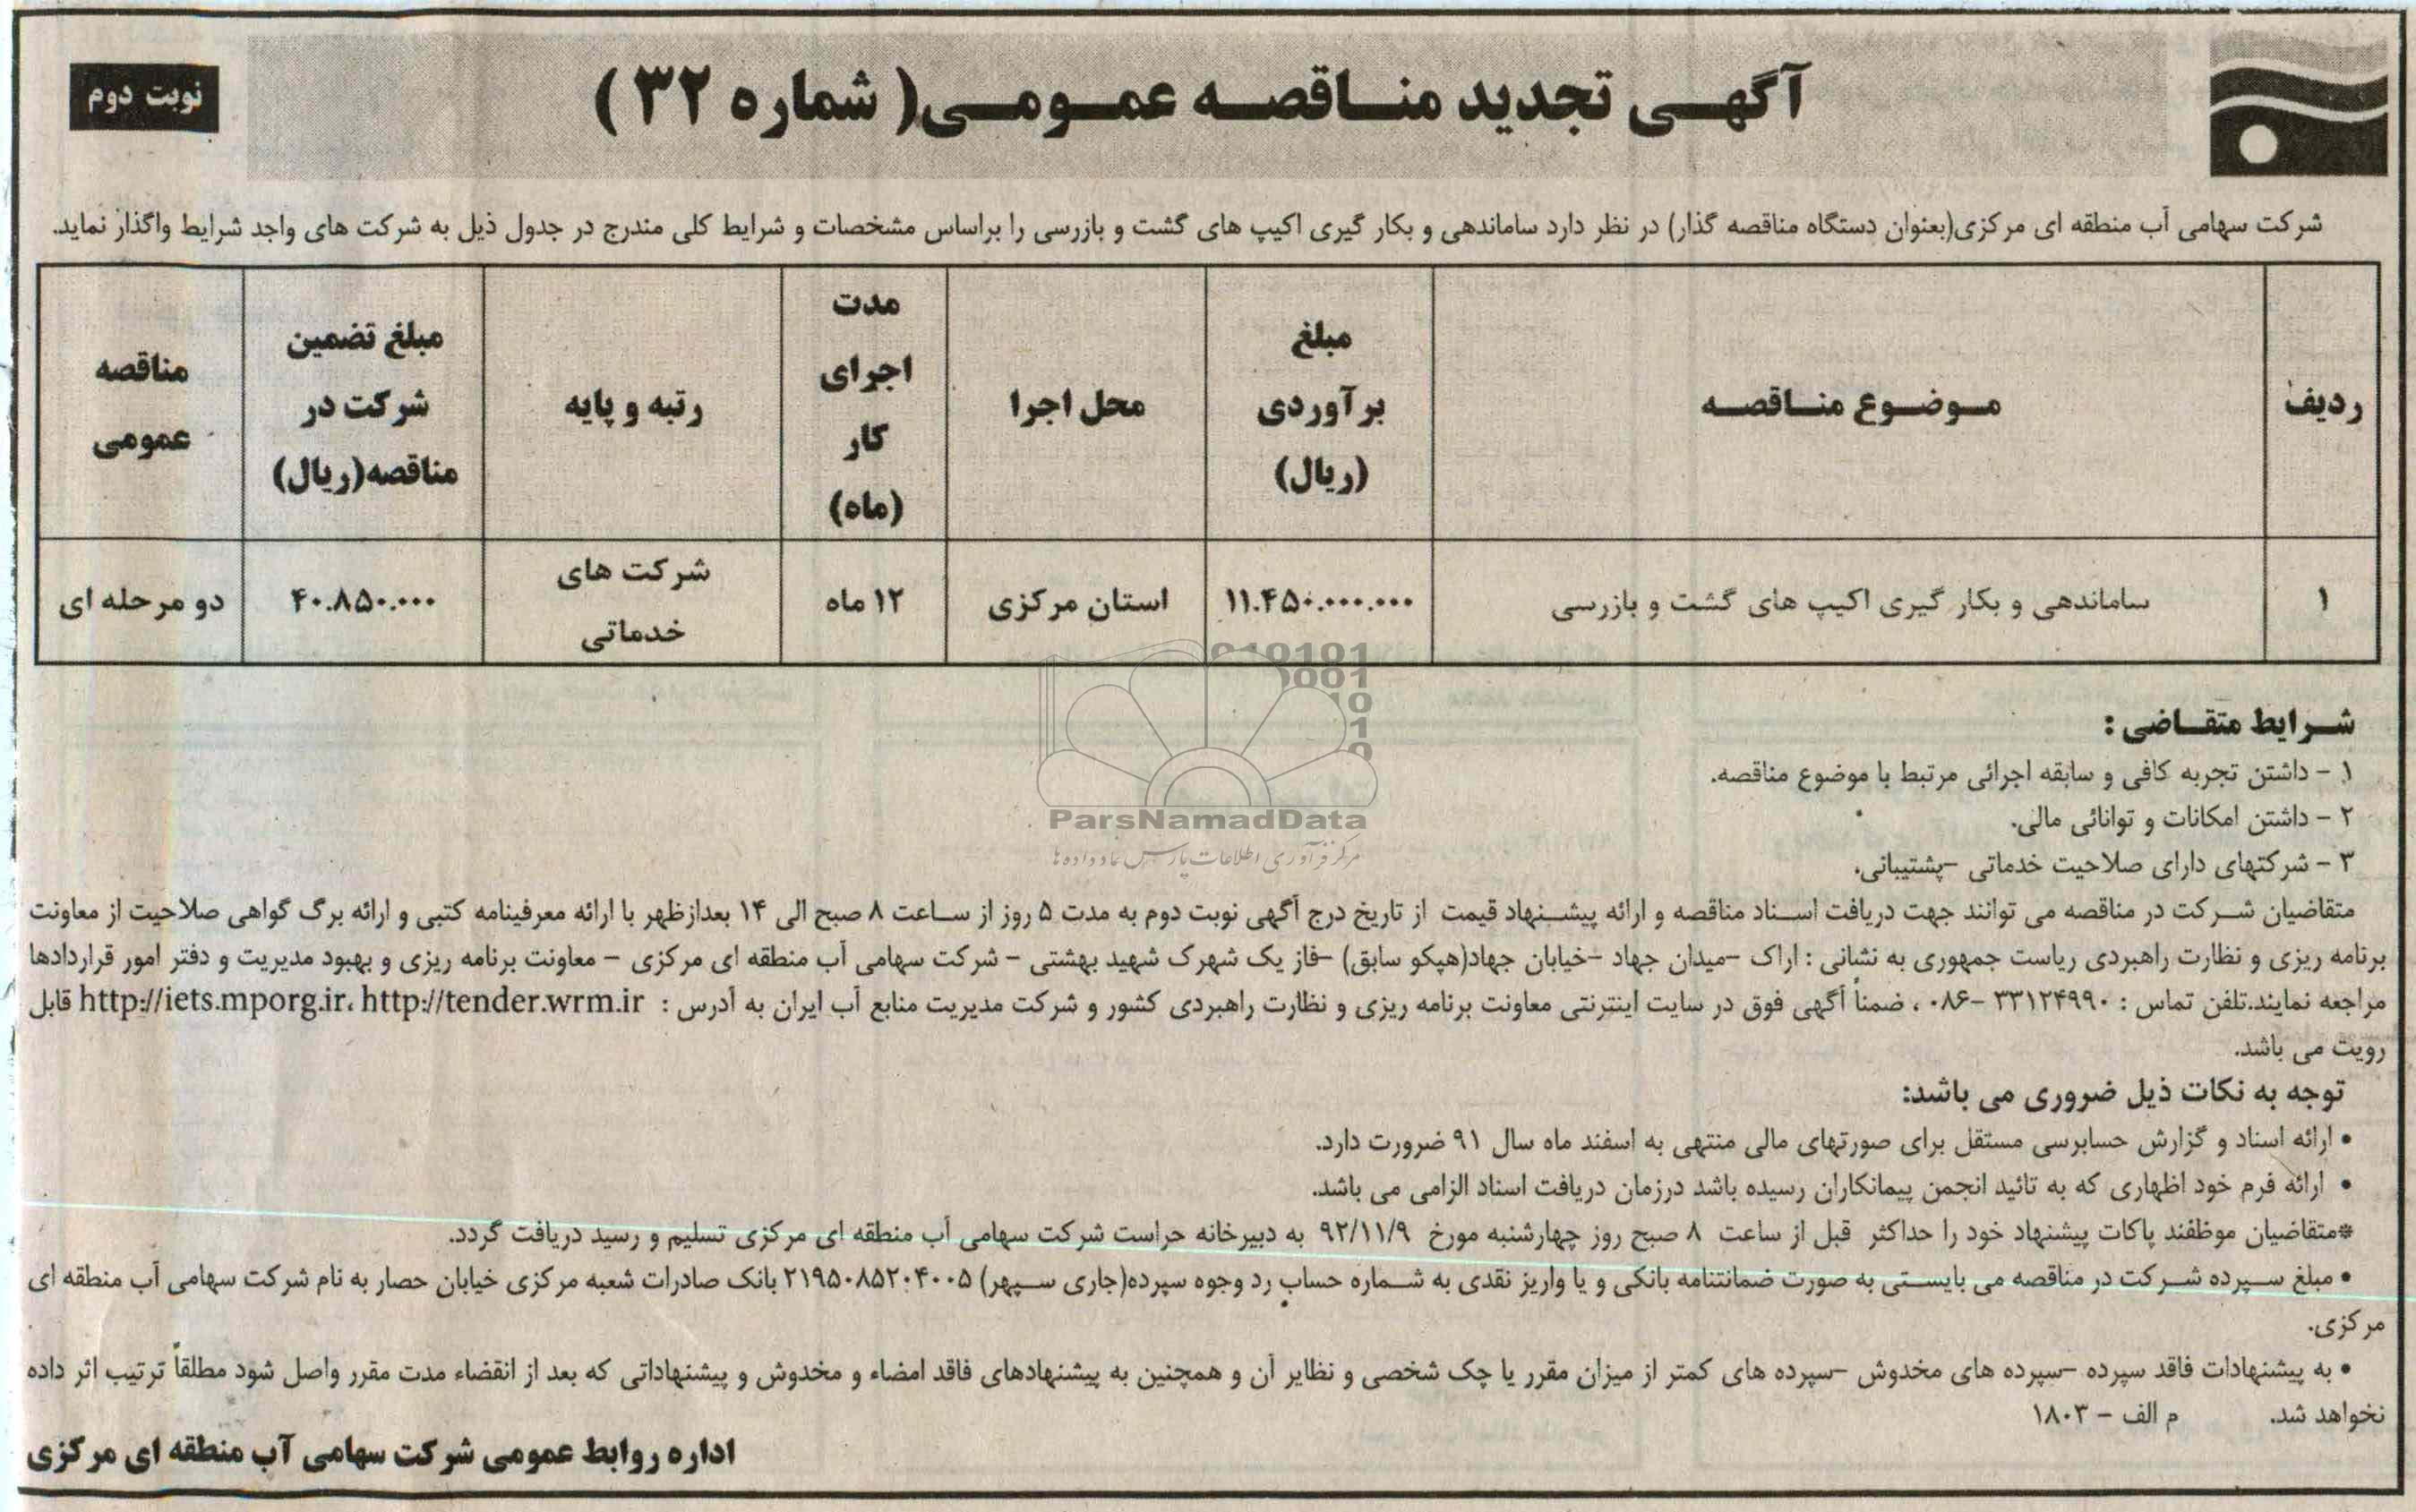 آگهی تجدید مناقصه عمومی( شماره ۳۲ )
نوبت دوم
شرکت سهامی آب منطقه ای مرکزی(بعنوان دستگاه مناقصه گذار) در نظر دارد ساماندهی و بکار گیری اکیپ های گشت و بازرسی را براساس مشخصات و شرایط کلی مندرج در جدول ذیل به شرکت های واجد شرایط واگذار نماید.
ردیف
موضوع مناقصه
مبلغ
برآوردی
(ریال)
محل اجرا
مدت
اجرای
کار
(ماه)
رتبه و پایه
مبلغ تضمین
شرکت در
مناقصه(ریال)
مناقصه
عمومی
۱
ساماندهی و بکار گیری اکیپ های گشت و بازرسی
۱۱.۴۵۰.۰۰۰.۰۰۰
استان مرکزی
۱۲ ماه
شرکت های
خدماتی
۴۰.۸۵۰.۰۰۰
دو مرحله ای
شرایط متقاضی :
۱ - داشتن تجربه کافی و سابقه اجرائی مرتبط با موضوع مناقصه.
۲ - داشتن امکانات و توانائی مالی.
۳ - شرکتهای دارای صلاحیت خدماتی -پشتیبانی.
ParsNamadData
مرکز فرآوری اطلاعات پارس نماد داده ها
متقاضیان شرکت در مناقصه می توانند جهت دریافت اسناد مناقصه و ارائه پیشنهاد قیمت از تاریخ درج آگهی نوبت دوم به مدت ۵ روز از ساعت ۸ صبح الی ۱۴ بعدازظهر با ارائه معرفینامه کتبی و ارائه برگ گواهی صلاحیت از معاونت
برنامه ریزی و نظارت راهبردی ریاست جمهوری به نشانی : اراک -میدان جهاد -خیابان جهاد(هپکو سابق) -فاز یک شهرک شهید بهشتی - شرکت سهامی آب منطقه ای مرکزی - معاونت برنامه ریزی و بهبود مدیریت و دفتر امور قراردادها
مراجعه نمایند.تلفن تماس : ۳۳۱۲۴۹۹۰ -۰۸۶ ، ضمناً آگهی فوق در سایت اینترنتی معاونت برنامه ریزی و نظارت راهبردی کشور و شرکت مدیریت منابع آب ایران به آدرس : http://iets.mporg.ir، http://tender.wrm.ir قابل
رویت می باشد.
توجه به نکات ذیل ضروری می باشد:
• ارائه اسناد و گزارش حسابرسی مستقل برای صورتهای مالی منتهی به اسفند ماه سال ۹۱ ضرورت دارد.
• ارائه فرم خود اظهاری که به تائید انجمن پیمانکاران رسیده باشد درزمان دریافت اسناد الزامی می باشد.
*متقاضیان موظفند پاکات پیشنهاد خود را حداکثر قبل از ساعت ۸ صبح روز چهارشنبه مورخ ۹۲/۱۱/۹ به دبیرخانه حراست شرکت سهامی آب منطقه ای مرکزی تسلیم و رسید دریافت گردد.
• مبلغ سپرده شرکت در مناقصه می بایستی به صورت ضمانتنامه بانکی و یا واریز نقدی به شماره حساب رد وجوه سپرده(جاری سپهر) ۲۱۹۵۰۸۵۲۰۴۰۰۵ بانک صادرات شعبه مرکزی خیابان حصار به نام شرکت سهامی آب منطقه ای
مرکزی.
• به پیشنهادات فاقد سپرده -سپرده های مخدوش -سپرده های کمتر از میزان مقرر یا چک شخصی و نظایر آن و همچنین به پیشنهادهای فاقد امضاء و مخدوش و پیشنهاداتی که بعد از انقضاء مدت مقرر واصل شود مطلقاً ترتیب اثر داده
نخواهد شد. م الف - ۱۸۰۳
اداره روابط عمومی شرکت سهامی آب منطقه ای مرکزی